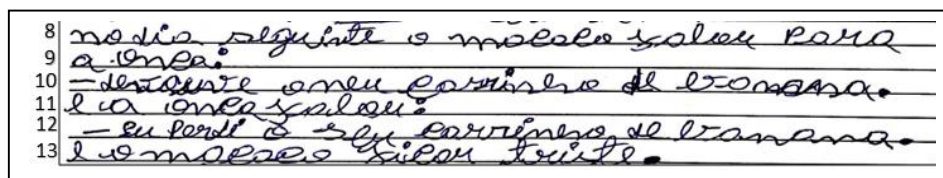 8 no dia seguinte o macaco falou para
9 a onça:
10 – devouve o meu carrinho de banana.
11 e a onça falou:
12 – eu perdi o seu carrinho de banana.
13 e o macaco ficou triste.